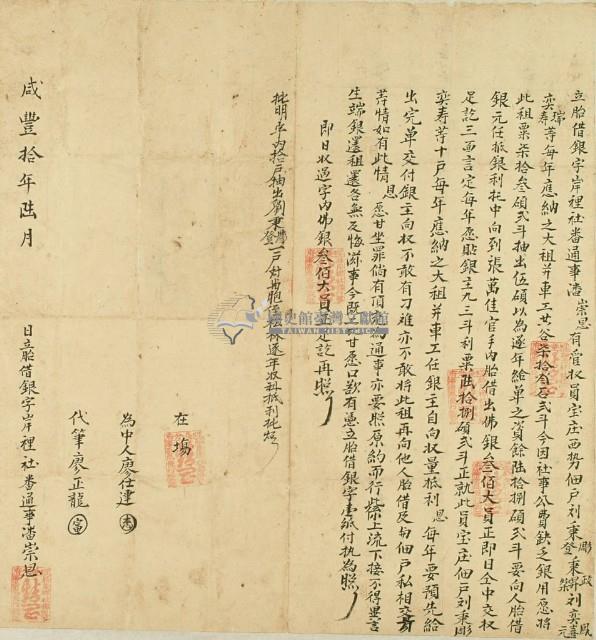 立胎借銀字岸裡社番通事潘崇恩有管收員宝庄西勢佃戶刘秉彫登秉
奕寿等每年應納之大租并車工廿谷柒拾叁石弍斗今因社事公費缺乏銀用愿將
此租粟柒拾叁碩弍斗抽出伍碩以為逐年給單之資餘陸拾捌碩弍斗要向人胎借
銀元任抵銀利托中向到張萬佳官手內胎借出佛銀叁佰大員正即日仝中交收
足訖三面言定每年愿貼銀主九三斗利粟陸拾捌碩弍斗正就此員宝庄佃戶刘秉彫
奕寿等十戶每年應納之大租并車工任銀主自向收量抵利恩每年要預先給
出完單交付銀主向收不敢有刁难亦不敢將此租再向他人胎借及与佃戶私相交
等情如有此情恩愿甘坐罪倘有頂為通事亦要照原約而行業上流下接不得異言
生端銀還租還各無反悔滋事今欲甘愿口欲有憑立胎借銀字壹紙付执為照
即日收過字內佛銀叁佰大員正足訖再照
批明本內拾戶抽出劉秉登一戶逐年收料抵利批炤
在塲
為中人廖仕建
代筆廖正龍
咸豐拾年陆月 日立胎借銀字岸裡社番通事潘崇恩
國史館臺灣文獻館
TAIWAN HISTORICA